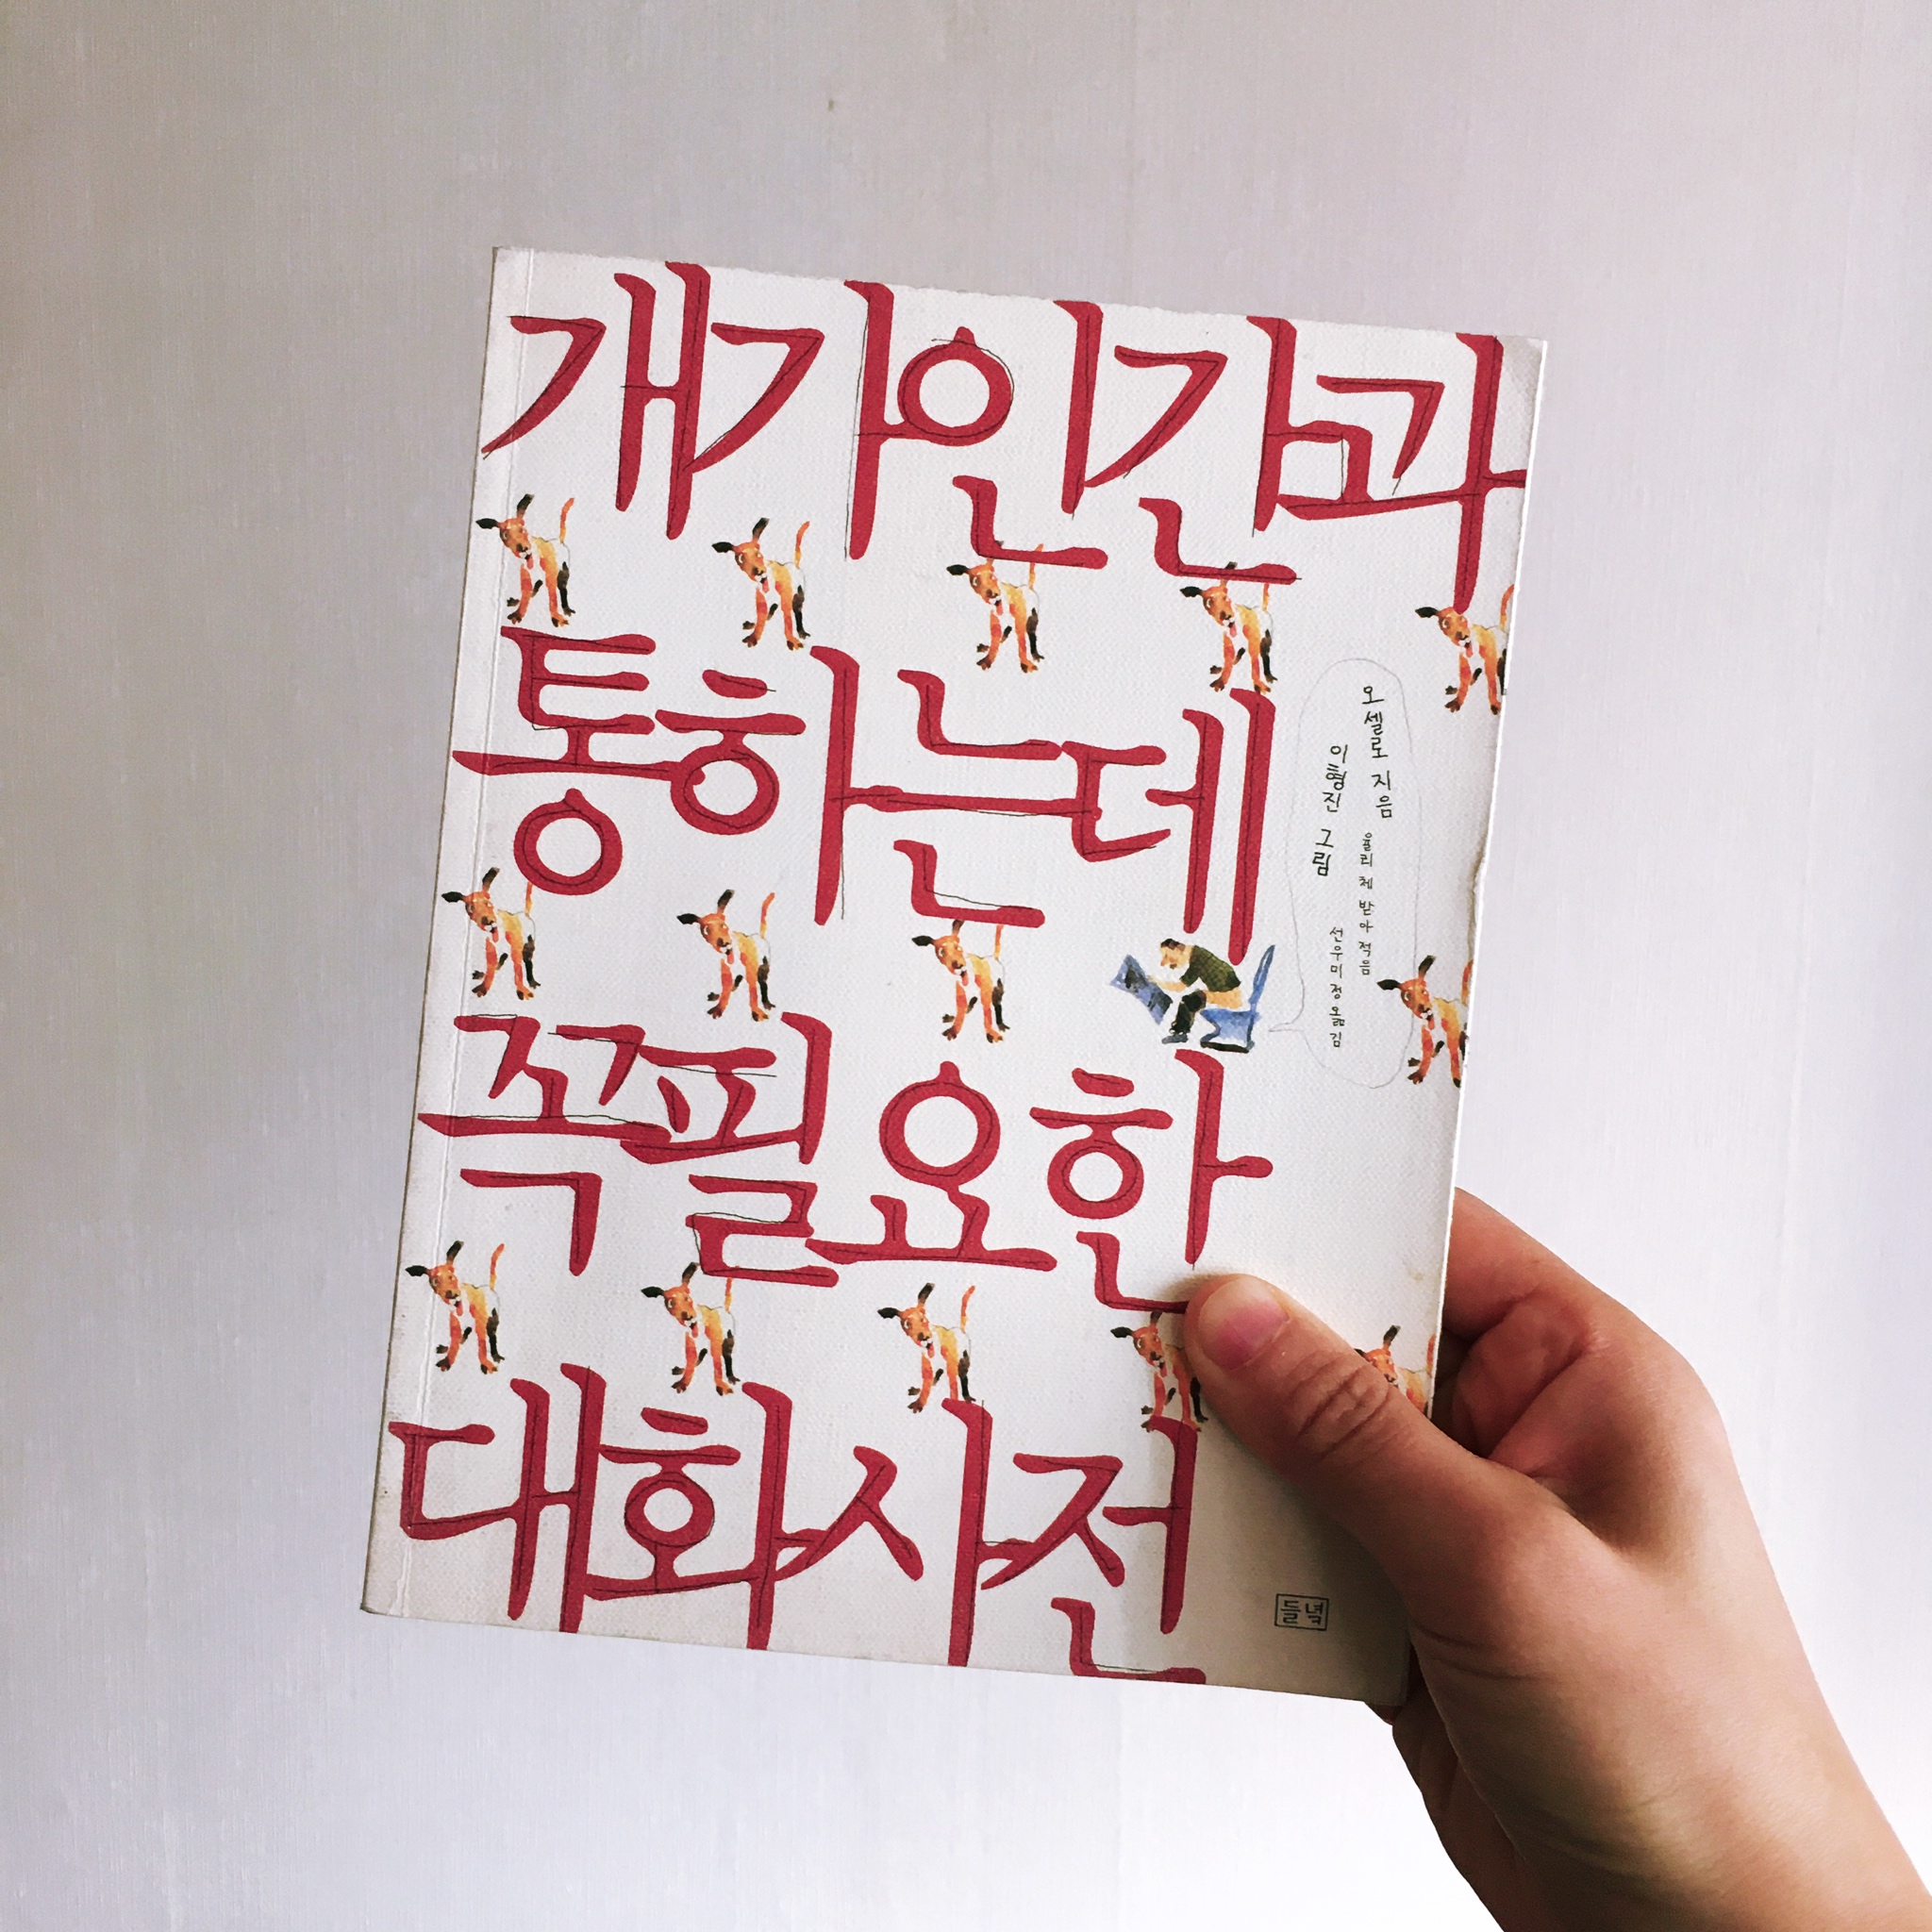 개가인간과
통하는데
꼭필요한
대화사전
오셀로 지음
울리 체 받아 적음
이형진 그림
선우미정 옮김
들녘